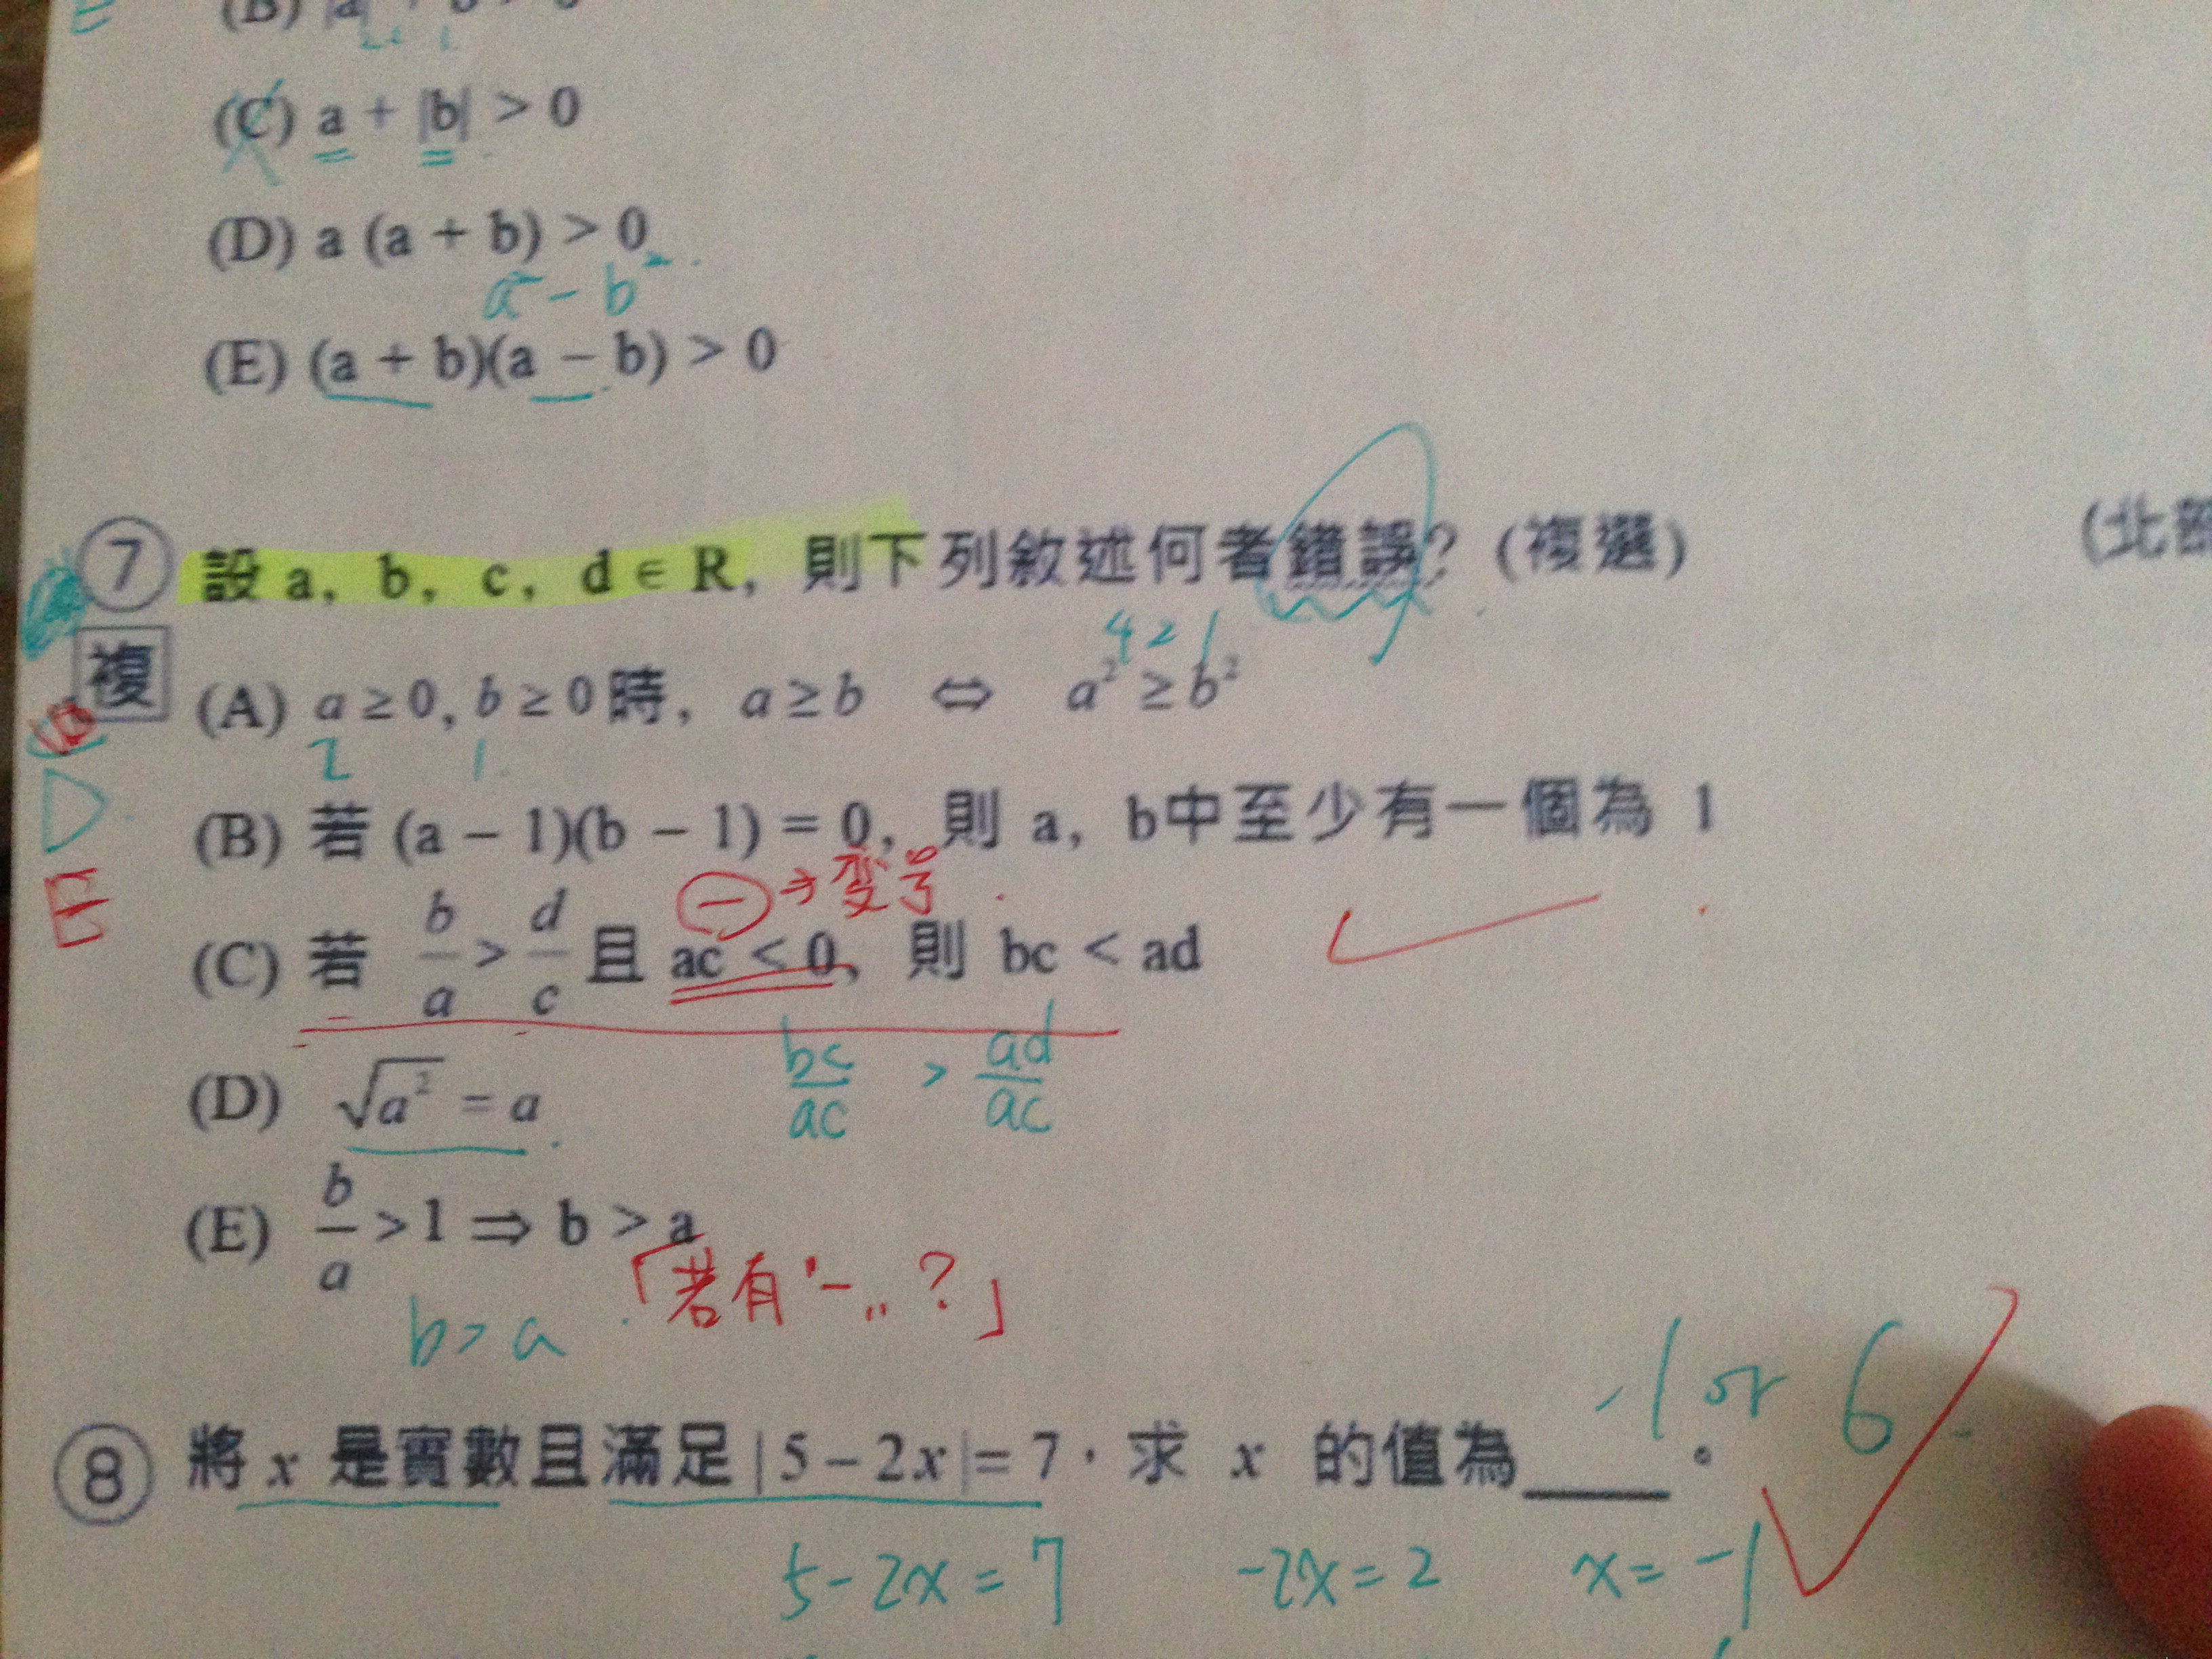 (C) a + |b| > 0
(D) a (a + b) > 0
a² - b²
(E) (a + b)(a - b) > 0
⑦ 設 a, b, c, d ∈ R, 則下列敘述何者錯誤? (複選) (北部
複
4 ≥ 1
(A) a ≥ 0, b ≥ 0 時, a ≥ b ⇔ a² ≥ b²
2 1
D
(B) 若 (a - 1)(b - 1) = 0, 則 a, b中至少有一個為 1
E
⊖ → 変号
(C) 若 b/a > d/c 且 ac < 0, 則 bc < ad
bc/ac > ad/ac
(D) √a² = a
(E) b/a > 1 ⇒ b > a
「若有"-"?」
b > a
-1 or 6
⑧ 將 x 是實數且滿足 | 5 - 2x |= 7, 求 x 的值為____。
5 - 2x = 7 -2x = 2 x = -1